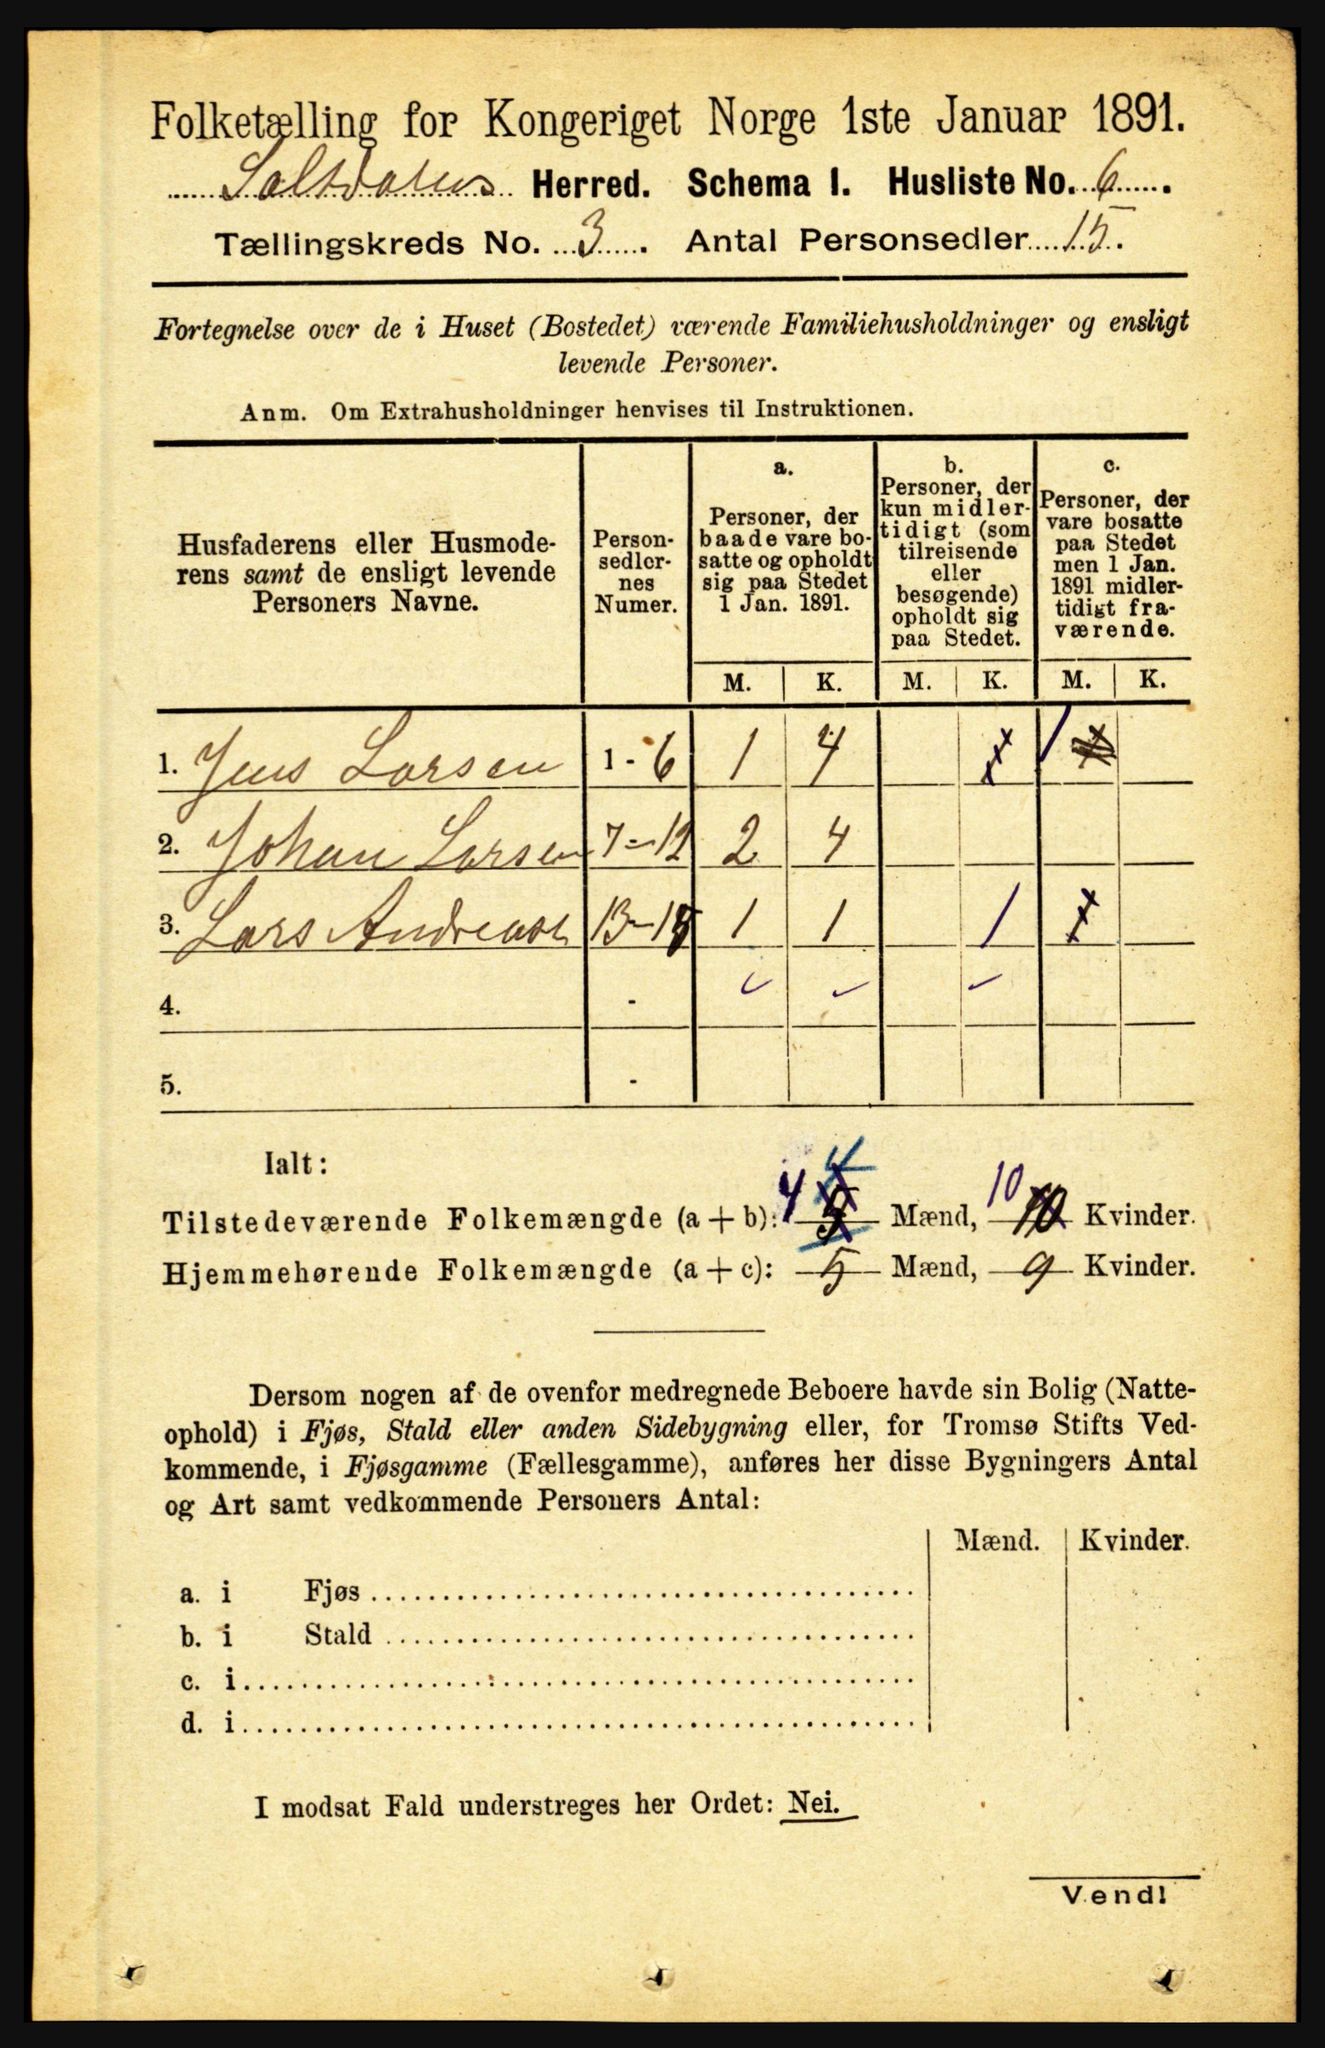 Folketælling for Kongeriget Norge 1ste Januar 1891.
Saltdalens Herred. Schema I. Husliste No. 6.
Tællingskreds No. 3. Antal Personsedler 15.
Fortegnelse over de i Huset (Bostedet) værende Familiehusholdninger og ensligt
levende Personer.
Anm. Om Extrahusholdninger henvises til Instruktionen.
Husfaderens eller Husmode-
rens samt de ensligt levende
Personers Navne.
Person-
sedler-
nes
Numer.
a.
Personer, der
baade vare bo-
satte og opholdt
sig paa Stedet
1 Jan. 1891.
b.
Personer, der
kun midler-
tidigt (som
tilreisende
eller
besøgende)
opholdt sig
paa Stedet.
c.
Personer, der
vare bosatte
paa Stedet
men 1 Jan.
1891 midler-
tidigt fra-
værende.
M. K. M. K. M. K.
1. Jens Larsen 1-6 1 4 1 1
2. Johan Larsen 7-12 2 4
3. Lars Andreas 13-15 1 1 1 1
4. -
5. -
Ialt:
4
Tilstedeværende Folkemængde (a+b): 4 5 Mænd, 10 10 Kvinder.
Hjemmehørende Folkemængde (a+c): 5 Mænd, 9 Kvinder.
Dersom nogen af de ovenfor medregnede Beboere havde sin Bolig (Natte-
ophold) i Fjøs, Stald eller anden Sidebygning eller, for Tromsø Stifts Ved-
kommende, i Fjøsgamme (Fællesgamme), anføres her disse Bygningers Antal
og Art samt vedkommende Personers Antal:
Mænd. Kvinder.
a. i Fjøs
b. i Stald
c. i
d. i
I modsat Fald understreges her Ordet: Nei.
Vend!